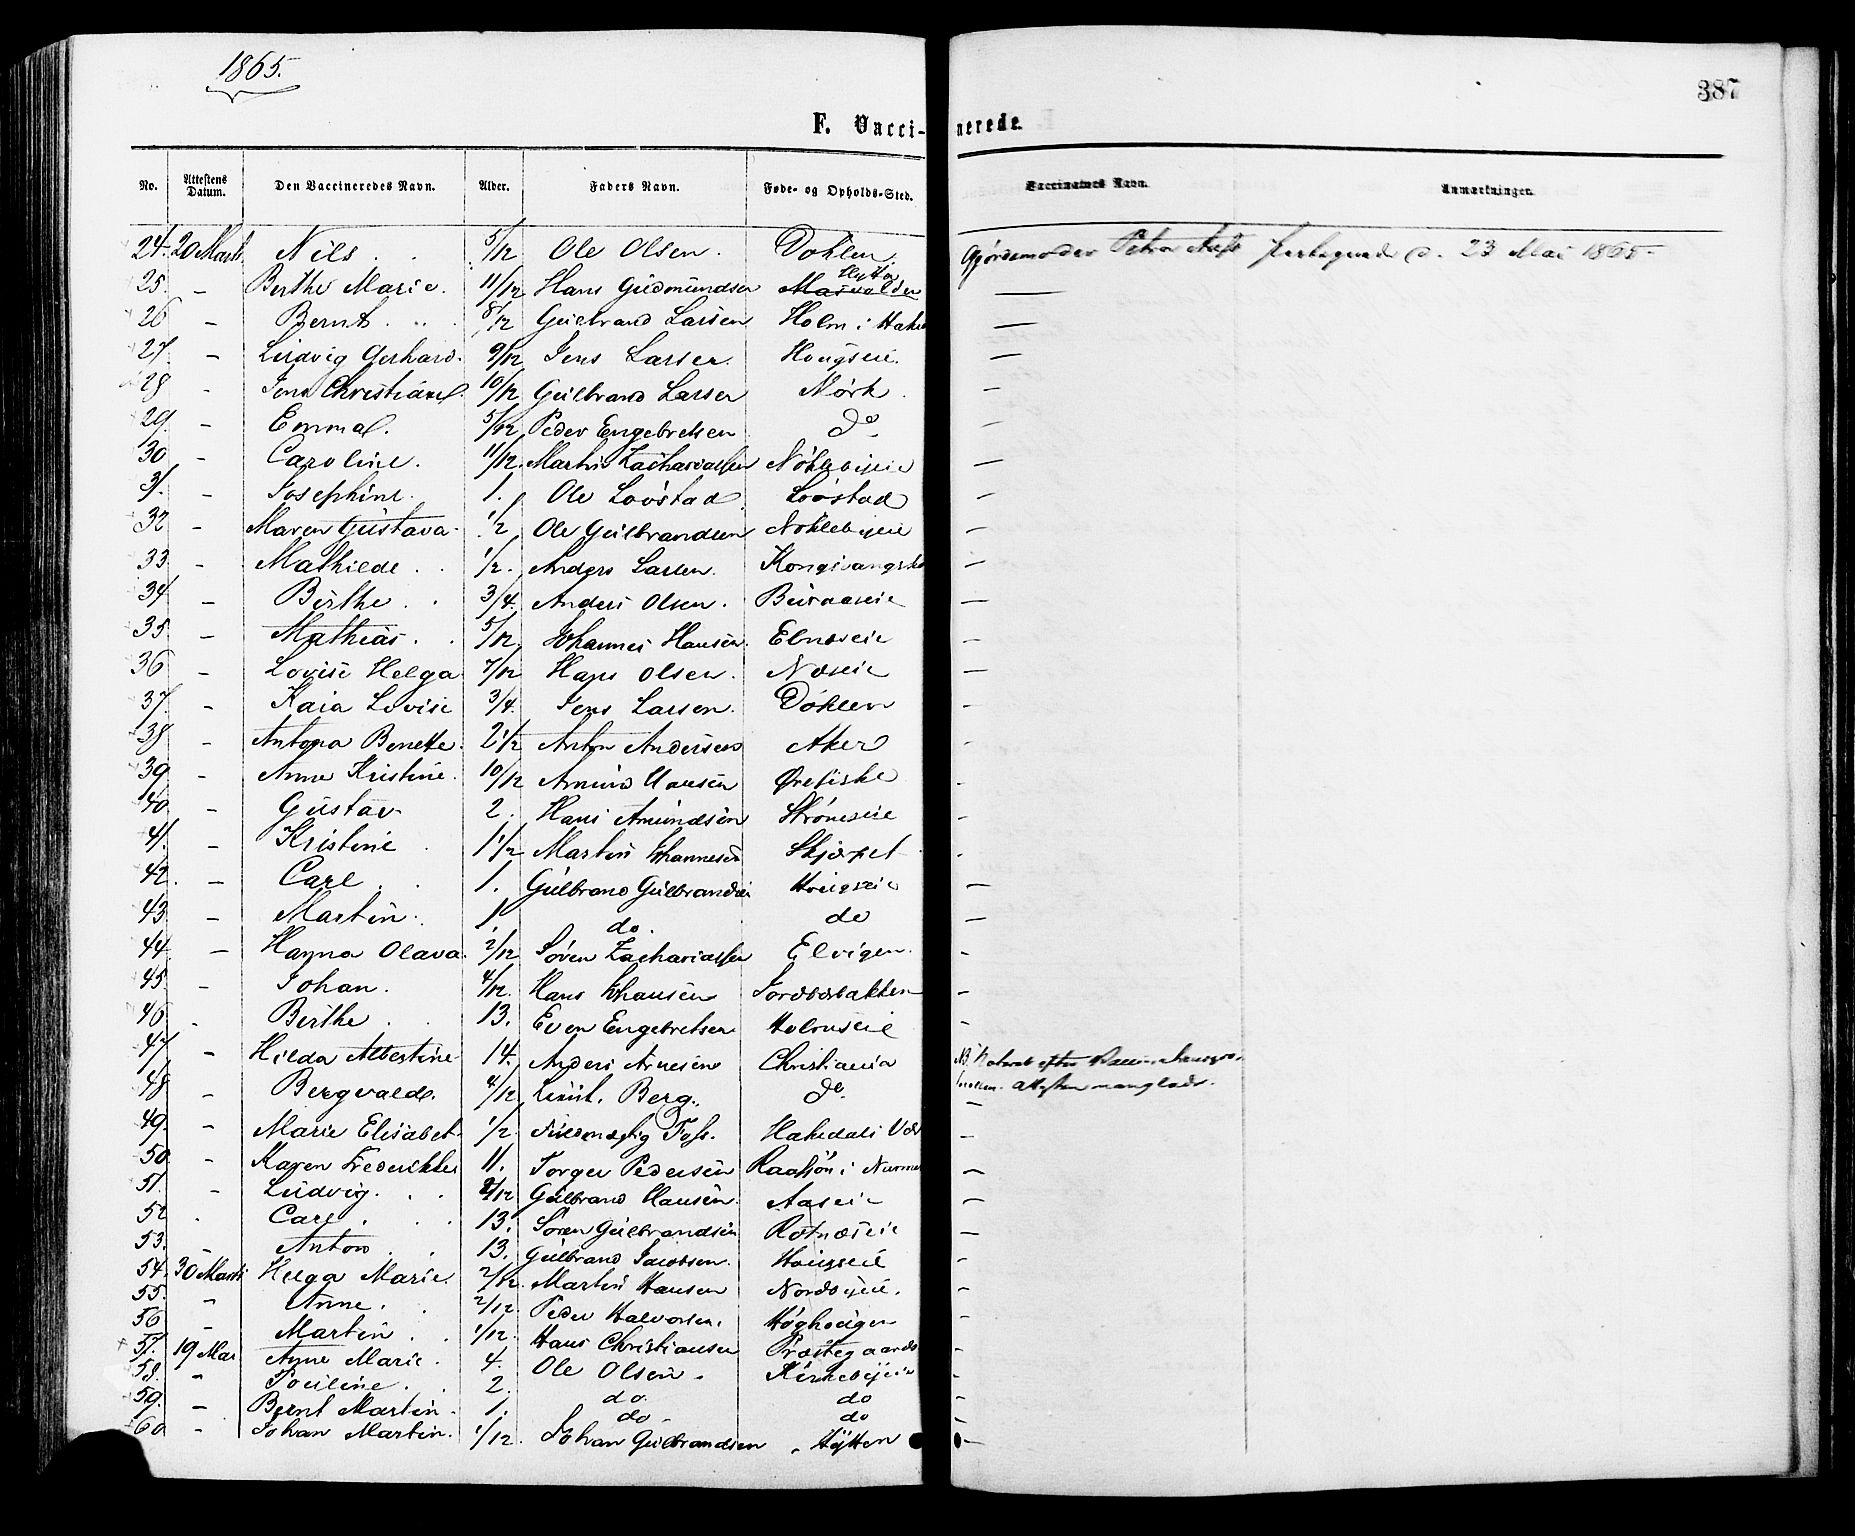 1865.
387
F. Vaccinerede.
No. Attestens Datum. Den Vaccineredes Navn. Alder. Faders Navn. Føde- og Opholds-Sted. Vaccinators Navn. Anmærkninger.
24. 20 Marts Nils 5/12 Ole Olsen. Døhlen. Gjordemoder Petra d. 23 Mai 1865
25. - Berthe Marie. 11/12 Hans Gudmundsen -
26 - Bernt 8/12 Gulbrand Larsen Holm i -
27. - Ludvig Gerhard. 9/12 Jens Larsen. Hougseie. -
28 - Jens Christian 10/12 Gulbrand Larsen Mørk -
29. - Emma. 5/12 Peder Engebretsen do -
30 - Caroline. 11/12 Martin Zachariassen Nøklebyeie -
31. - Josephine. 1. Ole Lovstad Lovstad -
32 - Maren Gustava 1/2 Ole Gulbrandsen Noklebyeie -
33 - Mathilde 1/2. Anders Larsen. -
34 - Berthe 3/4. Anders Olsen. -
35. - Mathias 5/12 Johannes Hansen. Elneseie -
36 - Lovise Helga 7/12 Hans Olsen. Næseie -
37. - Kaia Lovise 3/4. Jens Larsen. Døhlen -
38 - Antona Benette. 2 1/2 Anton Andersen Aker -
39. - Anne Kristine. 10/12 Amund Hansen Ørefiske -
40. - Gustav 2. Hans Amundsen Strømseie -
41. - Kristine 1 1/2 Martin Johannesen Skjærpet -
42. - Carl 1. Gulbrand Gulbrandsen Hougseie -
43 - Martin. 1. do. do -
44. - Hanna Olava 2/12 Søren Zachariassen Elvigen. -
45. - Johan. 4/12. Hans Johansen -
46 - Berthe 13. Even Engebretsen Holmseie -
47 - Hilda Albertine 14. Anders Arnesen Christiania NB. efter
48 - Bergvald. 4/12 Berg. do. attesten manglede. -
49. - Marie Elisabet. 1/2 Foss. Hakedals -
50. - Karen Frederikke 11. Torger Pedersen i -
51. - Ludvig. 8/12 Gulbrand Hansen. Aaseie -
52 - Carl 13. Søren Gulbrandsen Rotnæseie -
53. - Anton 13. Gulbrand Jacobsen. Hougseie -
54. 30 Marts Helga Marie. 2/12 Martin Hansen Nordbyeie. -
55. - Anne. 2/12. Peder Halvorsen. Høghougen -
56 - Martin 1/12. Hans Christiansen Præstegaards -
57. 19 Mai Anne Marie. 4. Ole Olsen. -
58. - 2. do. do -
59. - Bernt Martin. 1. do. do -
60 - Johan Martin. 1/12. Johan Gulbrandsen Hytten -